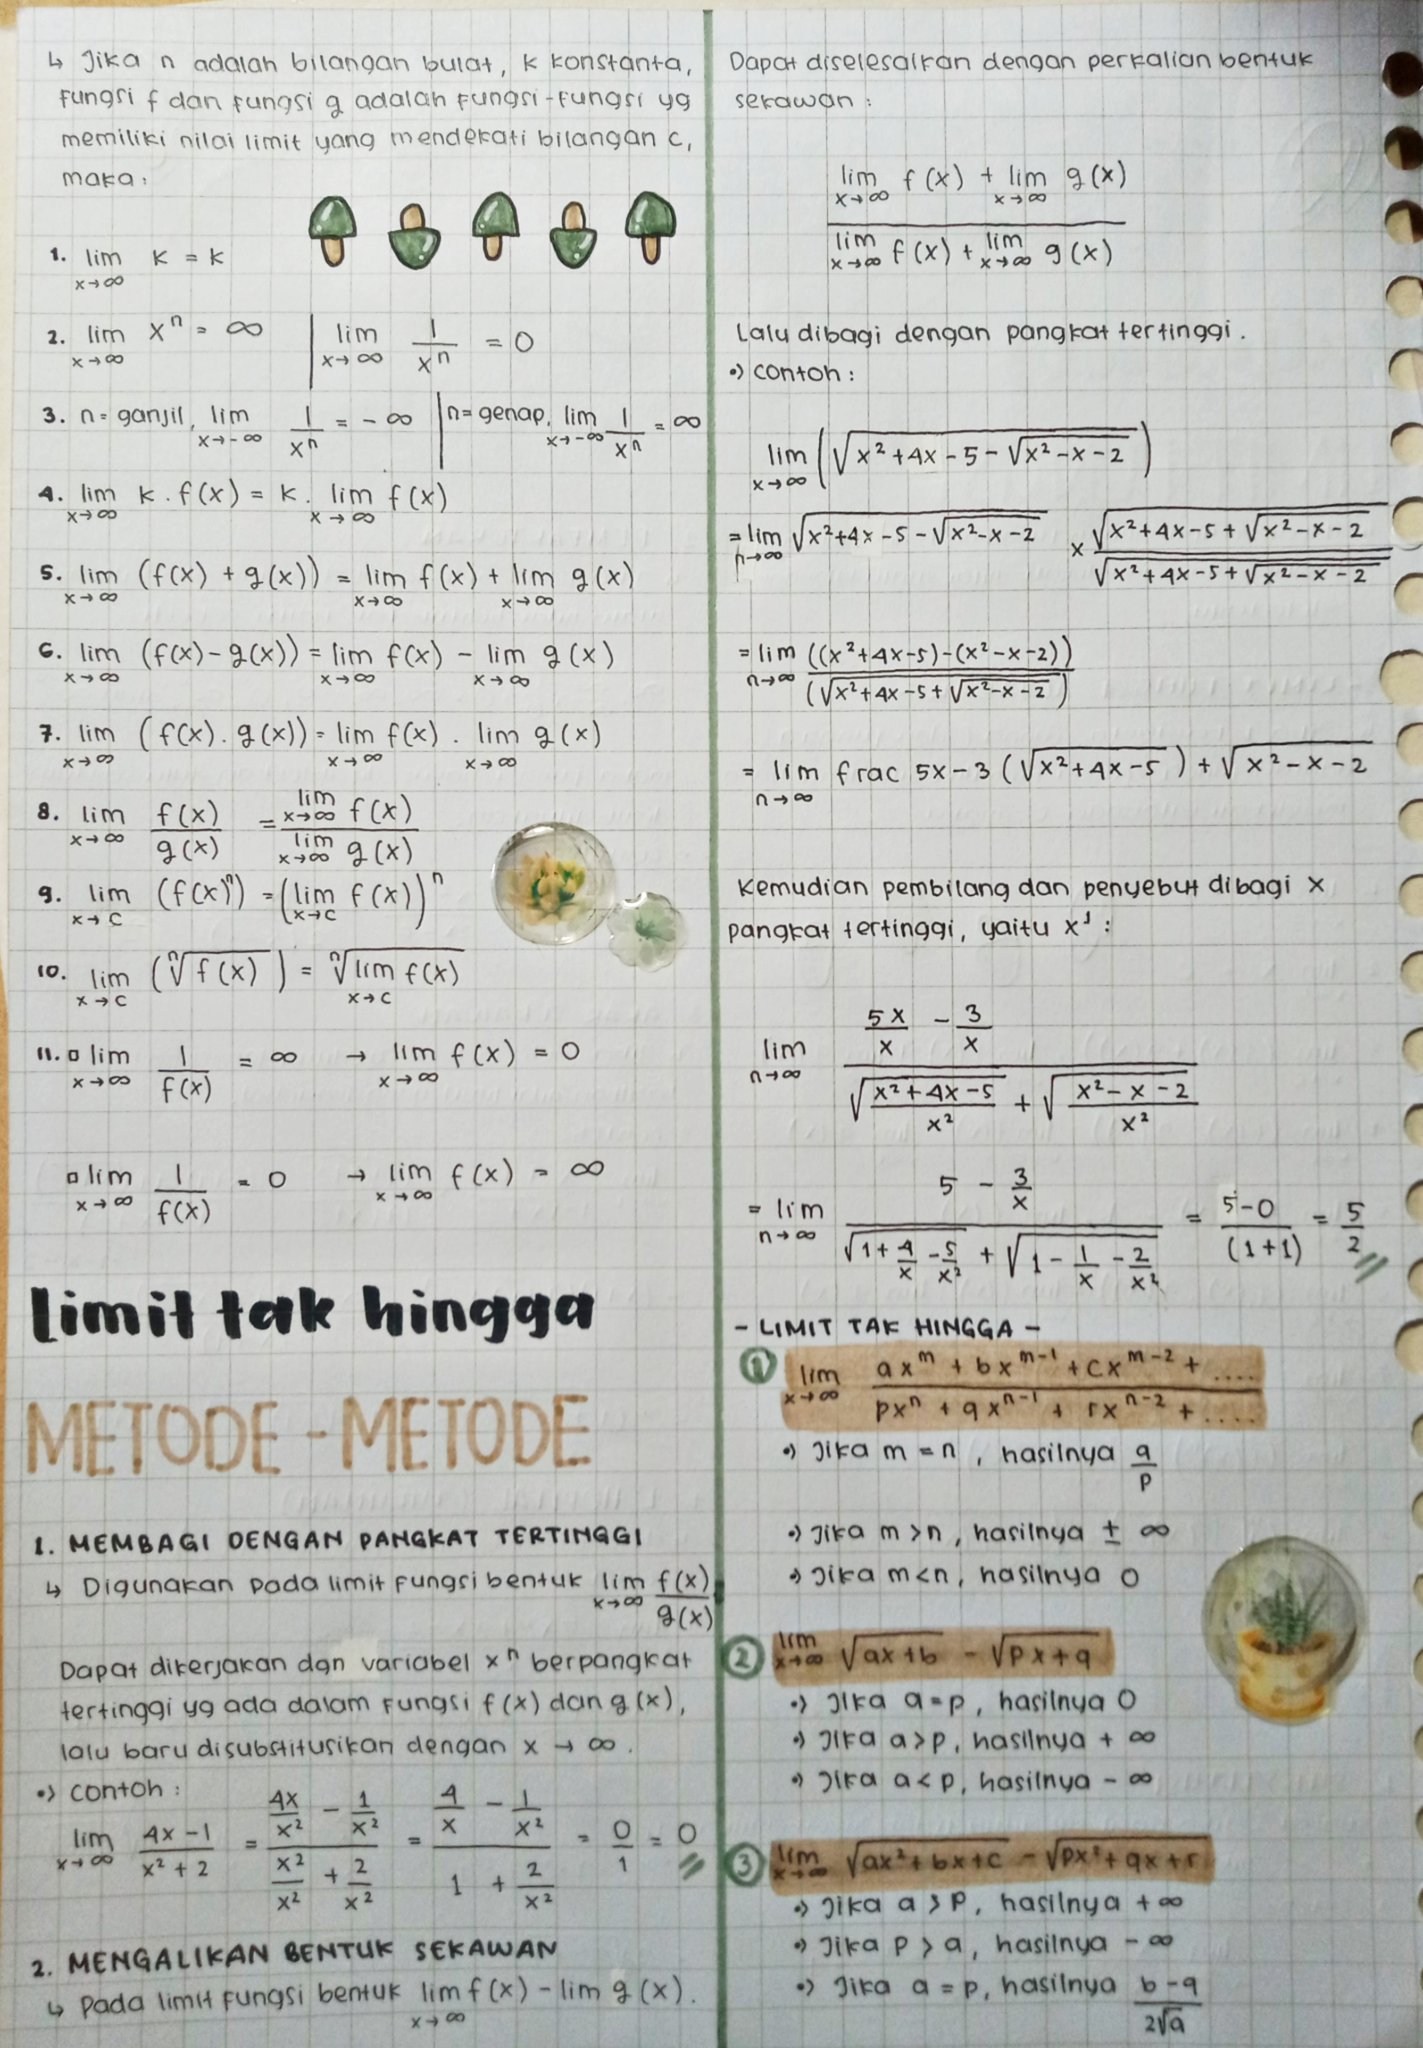 ↳ Jika n adalah bilangan bulat, k konstanta,
fungsi f dan fungsi g adalah fungsi-fungsi yg
memiliki nilai limit yang mendekati bilangan c,
maka:
1. lim x→∞ k = k
2. lim x→∞ xⁿ = ∞ | lim x→∞ 1/xⁿ = 0
3. n = ganjil, lim x→-∞ 1/xⁿ = -∞ | n = genap, lim x→-∞ 1/xⁿ = ∞
4. lim x→∞ k . f(x) = k . lim x→∞ f(x)
5. lim x→∞ (f(x) + g(x)) = lim x→∞ f(x) + lim x→∞ g(x)
6. lim x→∞ (f(x) - g(x)) = lim x→∞ f(x) - lim x→∞ g(x)
7. lim x→∞ (f(x) . g(x)) = lim x→∞ f(x) . lim x→∞ g(x)
8. lim x→∞ f(x)/g(x) = lim x→∞ f(x) / lim x→∞ g(x)
9. lim x→c (f(x)ⁿ) = (lim x→c f(x))ⁿ
10. lim x→c (ⁿ√f(x)) = ⁿ√lim x→c f(x)
11. ▫ lim x→∞ 1/f(x) = ∞ → lim x→∞ f(x) = 0
▫ lim x→∞ 1/f(x) = 0 → lim x→∞ f(x) = ∞
limit tak hingga
METODE - METODE
1. MEMBAGI DENGAN PANGKAT TERTINGGI
↳ Digunakan pada limit fungsi bentuk lim x→∞ f(x)/g(x)
Dapat dikerjakan dgn variabel xⁿ berpangkat
tertinggi yg ada dalam fungsi f(x) dan g(x),
lalu baru disubstitusikan dengan x → ∞.
•) contoh:
lim x→∞ (4x-1)/(x²+2) = (4x/x² - 1/x²)/(x²/x² + 2/x²) = (4/x - 1/x²)/(1 + 2/x²) = 0/1 = 0
2. MENGALIKAN BENTUK SEKAWAN
↳ Pada limit fungsi bentuk lim x→∞ f(x) - lim g(x).
Dapat diselesaikan dengan perkalian bentuk
sekawan:
(lim x→∞ f(x) + lim x→∞ g(x)) / (lim x→∞ f(x) + lim x→∞ g(x))
Lalu dibagi dengan pangkat tertinggi.
•) contoh:
lim x→∞ (√(x²+4x-5-√(x²-x-2)))
= lim n→∞ √(x²+4x-5-√(x²-x-2)) × √(x²+4x-5+√(x²-x-2)) / √(x²+4x-5+√(x²-x-2))
= lim n→∞ ((x²+4x-5)-(x²-x-2)) / (√(x²+4x-5+√(x²-x-2)))
= lim n→∞ frac 5x-3 (√(x²+4x-5)) + √(x²-x-2)
Kemudian pembilang dan penyebut dibagi x
pangkat tertinggi, yaitu x¹:
lim n→∞ (5x/x - 3/x) / (√((x²+4x-5)/x²) + √((x²-x-2)/x²))
= lim n→∞ (5 - 3/x) / (√(1+4/x-5/x²) + √(1-1/x-2/x²)) = (5-0)/(1+1) = 5/2
- LIMIT TAK HINGGA -
① lim x→∞ (axᵐ + bxᵐ⁻¹ + cxᵐ⁻² + ....) / (pxⁿ + qxⁿ⁻¹ + rxⁿ⁻² + ....)
•) Jika m = n, hasilnya a/p
•) Jika m > n, hasilnya ± ∞
•) Jika m < n, hasilnya 0
② lim x→∞ √(ax+b) - √(px+q)
•) Jika a = p, hasilnya 0
•) Jika a > p, hasilnya + ∞
•) Jika a < p, hasilnya - ∞
③ lim x→∞ √(ax²+bx+c) - √(px²+qx+r)
•) Jika a > p, hasilnya + ∞
•) Jika p > a, hasilnya - ∞
•) Jika a = p, hasilnya (b-q)/(2√a)